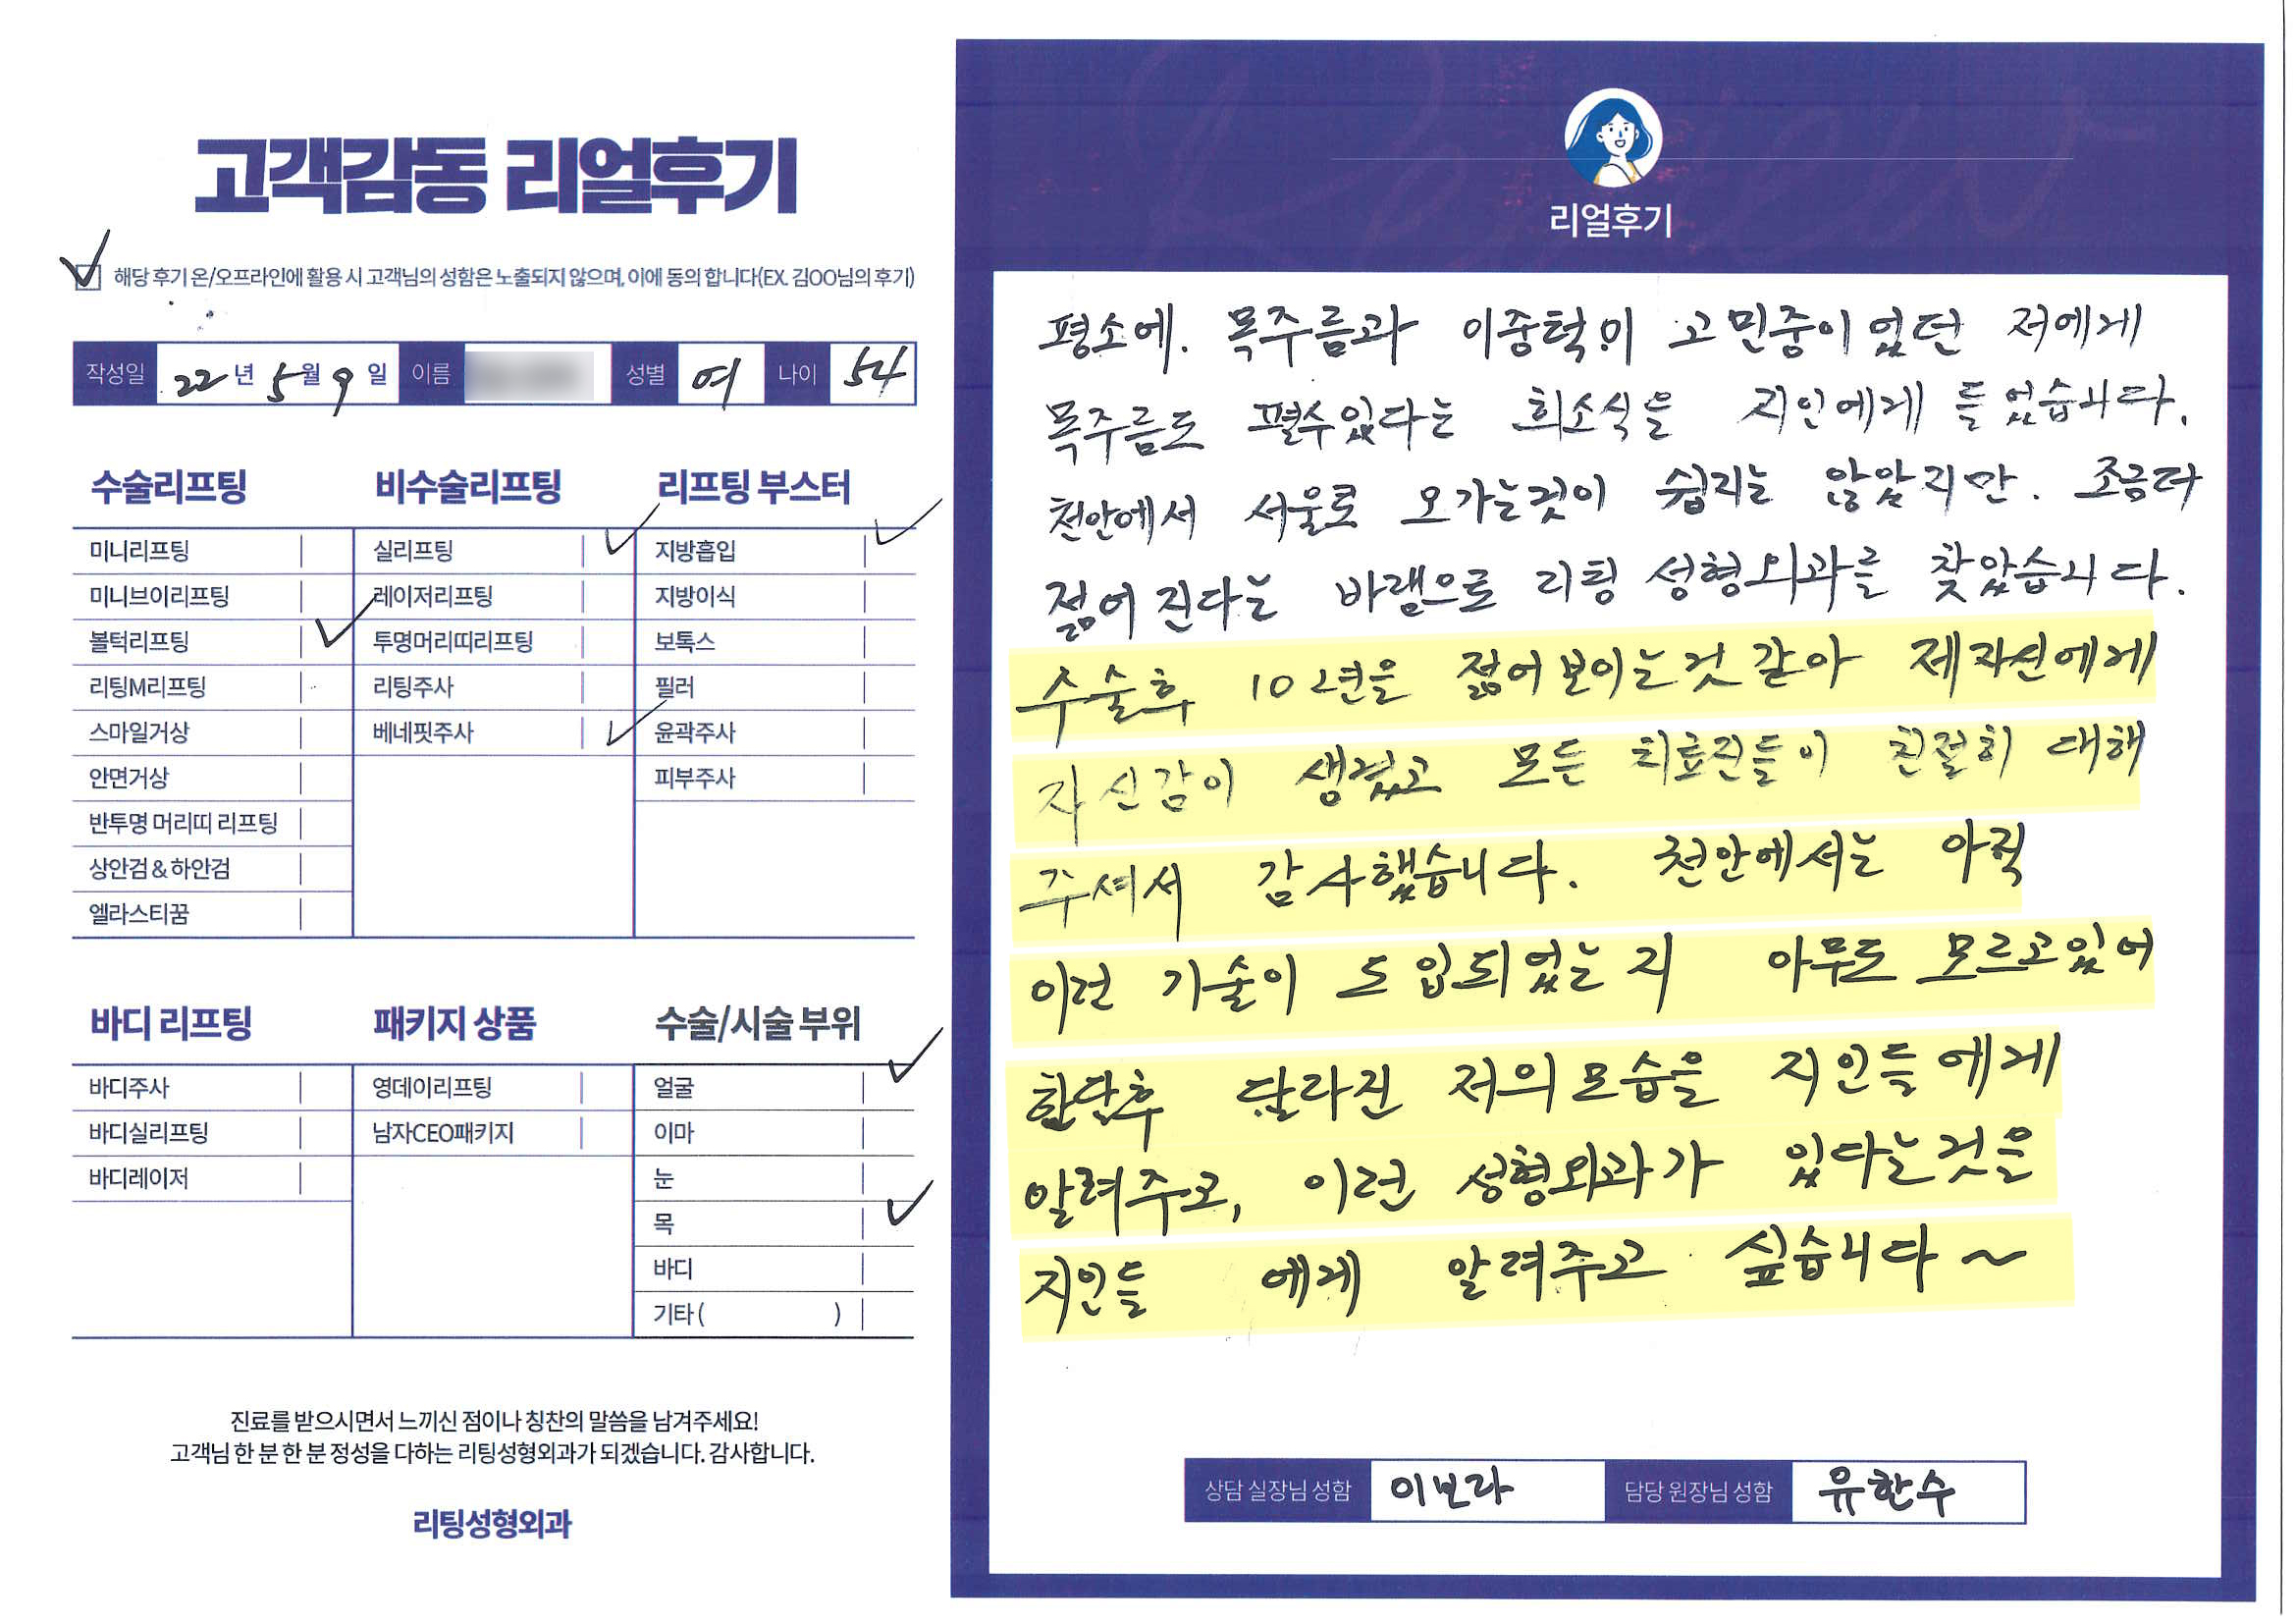 고객감동 리얼후기
해당 후기 온/오프라인에 활용 시 고객님의 성함은 노출되지 않으며, 이에 동의 합니다(EX. 김OO님의 후기)
작성일 22년 5월 9일 이름 성별 여 나이 54
수술리프팅
미니리프팅
미니브이리프팅
볼턱리프팅
리팅M리프팅
스마일거상
안면거상
반투명 머리띠 리프팅
상안검 & 하안검
엘라스티꿈
비수술리프팅
실리프팅
레이저리프팅
투명머리띠리프팅
리팅주사
베네핏주사
리프팅 부스터
지방흡입
지방이식
보톡스
필러
윤곽주사
피부주사
바디 리프팅
바디주사
바디실리프팅
바디레이저
패키지 상품
영데이리프팅
남자CEO패키지
수술/시술 부위
얼굴
이마
눈
목
바디
기타 ( )
진료를 받으시면서 느끼신 점이나 칭찬의 말씀을 남겨주세요!
고객님 한 분 한 분 정성을 다하는 리팅성형외과가 되겠습니다. 감사합니다.
리팅성형외과
리얼후기
평소에. 목주름과 이중턱이 고민중이었던 저에게
목주름도 펼수있다는 희소식을 지인에게 들었습니다.
천안에서 서울로 오가는것이 쉽지는 않았지만. 조금더
젊어 진다는 바램으로 리팅 성형외과를 찾았습니다.
수술후 10년은 젊어보이는것 같아 제자신에게
자신감이 생겼고 모든 치료진들이 친절히 대해
주셔서 감사했습니다. 천안에서는 아직
이런 기술이 도입되었는지 아무도 모르고있어
한달후 달라진 저의모습을 지인들에게
알려주고, 이런 성형외과가 있다는것을
지인들 에게 알려주고 싶습니다~
상담 실장님 성함 이보라 담당 원장님 성함 유한수